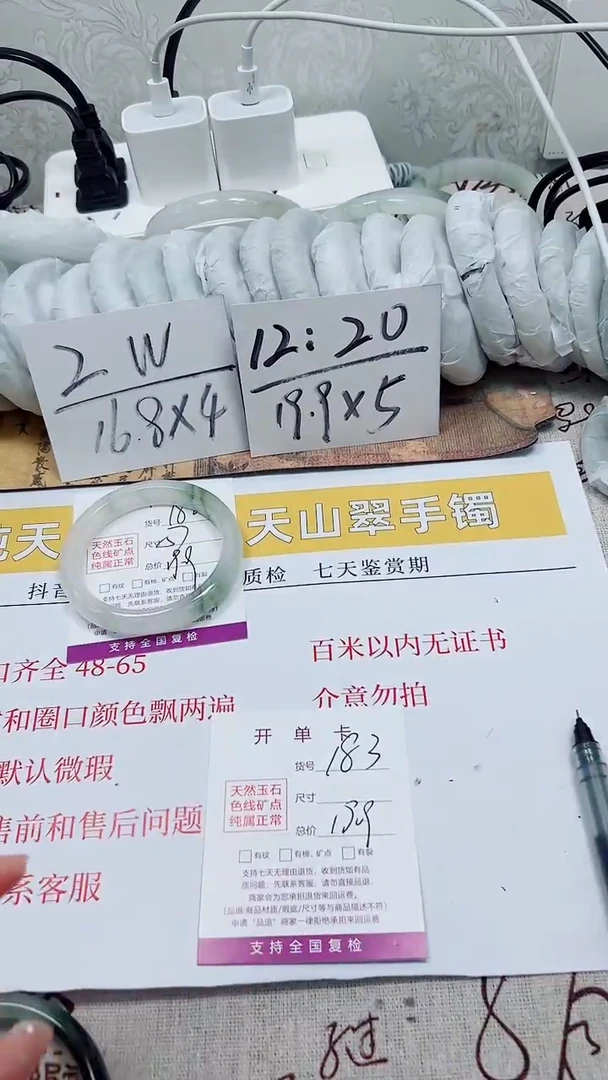 2W
16.8×4
12:20
19.9×5
天山翠手镯
货号
尺寸
总价
天然玉石
色线矿点
纯属正常
支持全国复检
质检 七天鉴赏期
口齐全 48-65
百米以内无证书
和圈口颜色飘两遍
介意勿拍
默认微瑕
售前和售后问题
系客服
开单卡
货号 183
尺寸
总价 199
天然玉石
色线矿点
纯属正常
有纹 有棉、矿点 有裂
支持七天无理由退货，收到货如有品
质问题，先联系客服，请勿直接品退，
商家会为您承担退货来回运费
(品退:商品材质/瑕疵/尺寸等与商品描述不符)
申请“品退”商家一律拒绝承担来回运费
支持全国复检